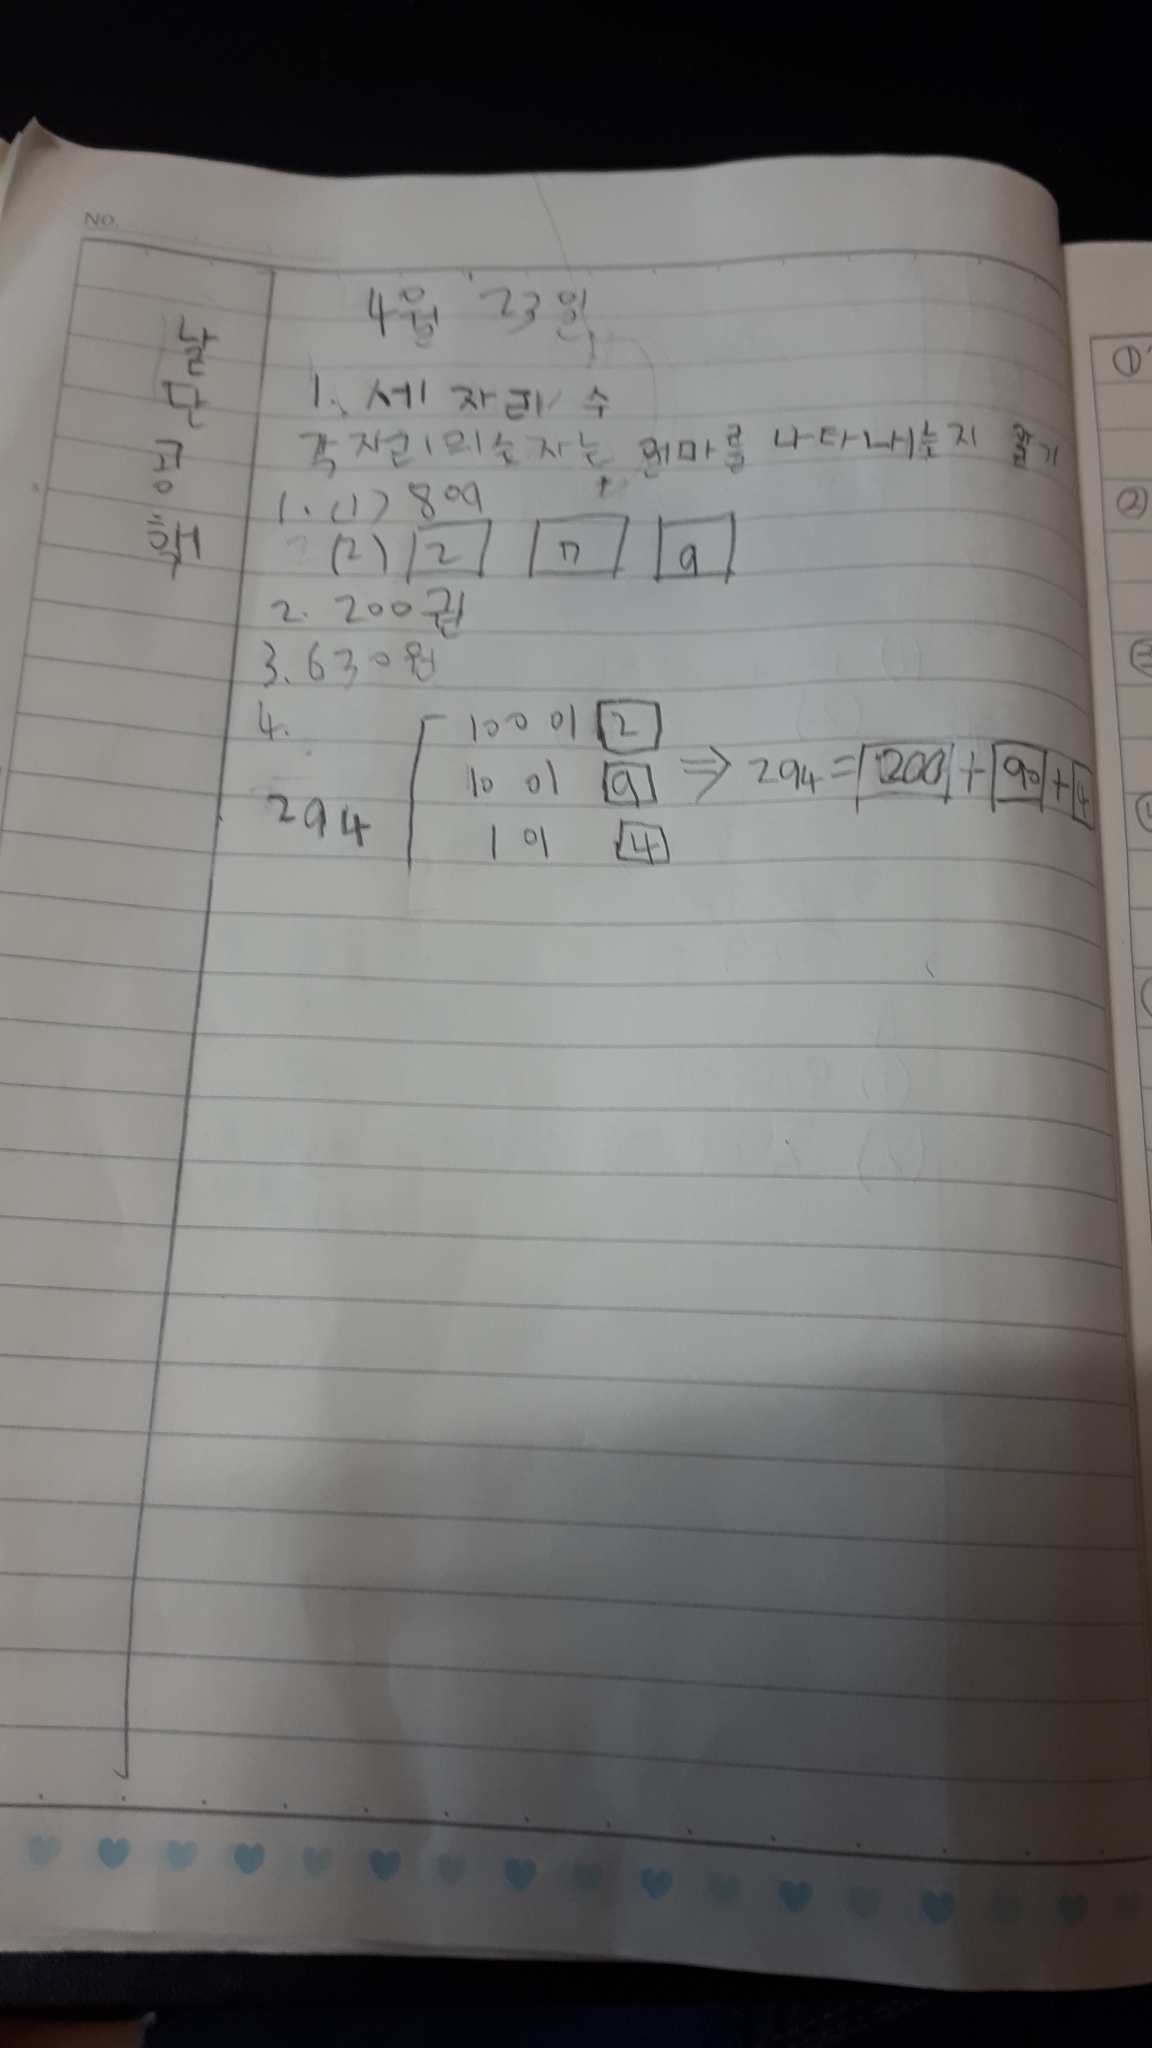 NO.
4월 23일
날
단 1. 세 자리 수
공 각 자리의 숫자는 얼마를 나타내는지 알기
핵 1. (1) 809
(2) 2 9
2. 200권
3. 630원
4. 100이 2
10이 9 ⇒ 294 = 200 + 90 + 4
294
1이 4
①
②